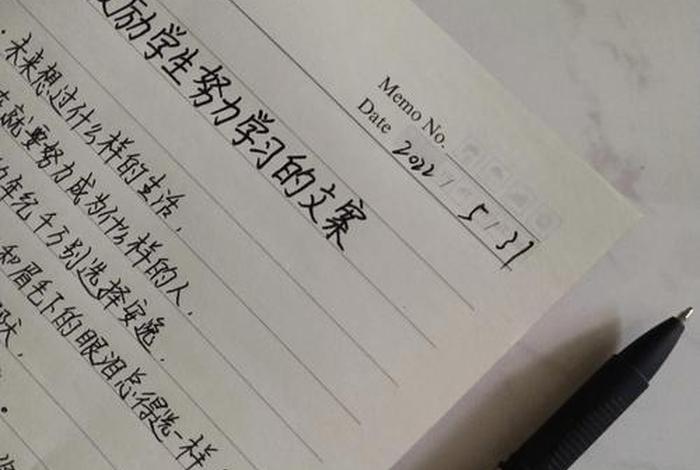 Memo No.
Date 2022 / 5 / 31
励学生努力学习的文案
未来想过什么样的生活，
就要努力成为什么样的人，
年纪千万别选择安逸，
和眉毛下的眼泪总得选一样